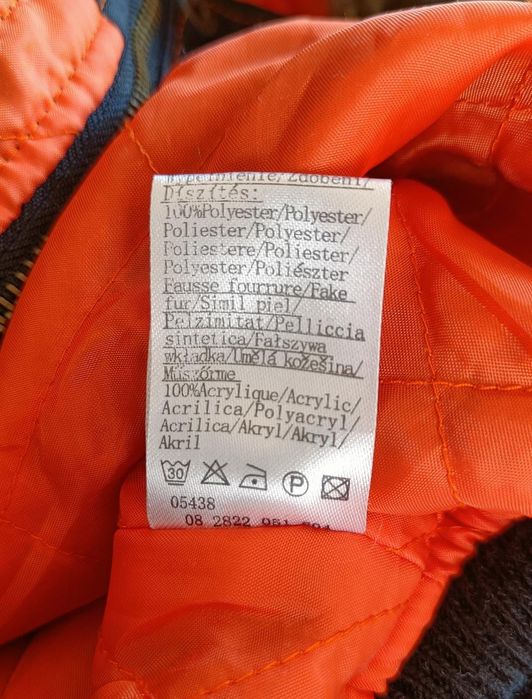 Zdobení/
Díszítés:
100%Polyester/Polyester/
Poliester/Polyester/
Poliestere/Poliester/
Polyester/Poliészter
Fausse fourrure/Fake
fur/Simil piel/
Pelzimitat/Pelliccia
sintetica/Fałszywa
wkładka/Umělá kožešina/
Műszőrme
100%Acrylique/Acrylic/
Acrilica/Polyacryl/
Acrilica/Akryl/Akryl/
Akril
30 P
05438
08 2822